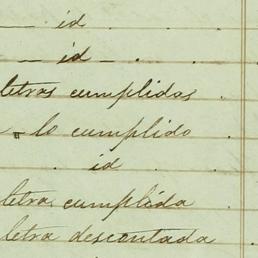 id
id
letras cumplidas
lo cumplido
id
letra cumplida
letra descontada